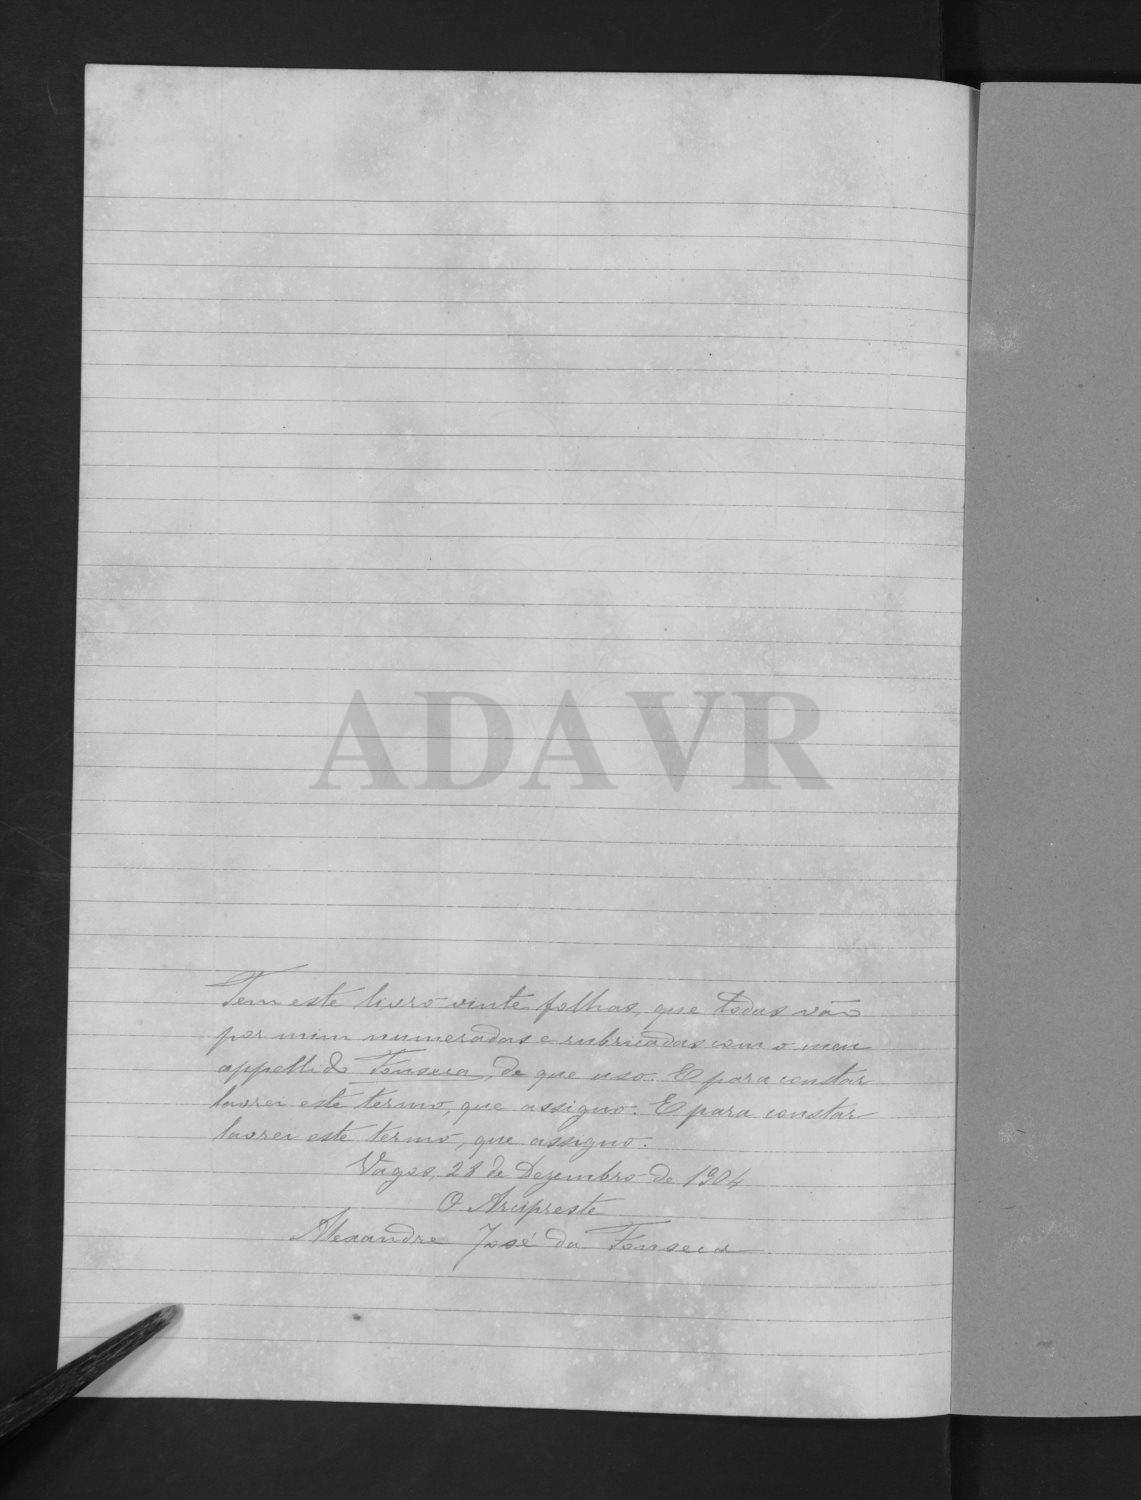 ADAVR
Tem este livro vinte folhas, que todas vão
por mim numeradas e rubricadas com o meu
appellido Fonseca, de que uso. E para constar
lavrei este termo, que assigno. E para constar
lavrei este termo, que assigno.
Vagos, 28 de Dezembro de 1904
O Arcipreste
Alexandre José da Fonseca